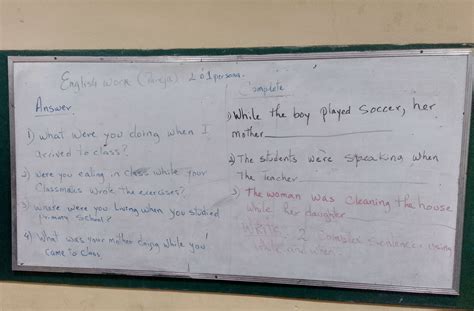 English work (Pareja) 2 ó 1 persona.
Answer
1) What were you doing when I
arrived to class?
2) Were you eating in class while your
Classmates wrote the exercises?
3) Where were you living when you studied
primary school?
4) What was your mother doing while you
came to class
Complete
1) While the boy played soccer, her
mother
2) The students were speaking when
the teacher
3) The woman was cleaning the house
while her daughter
Write 2 complex sentences using
while and when.